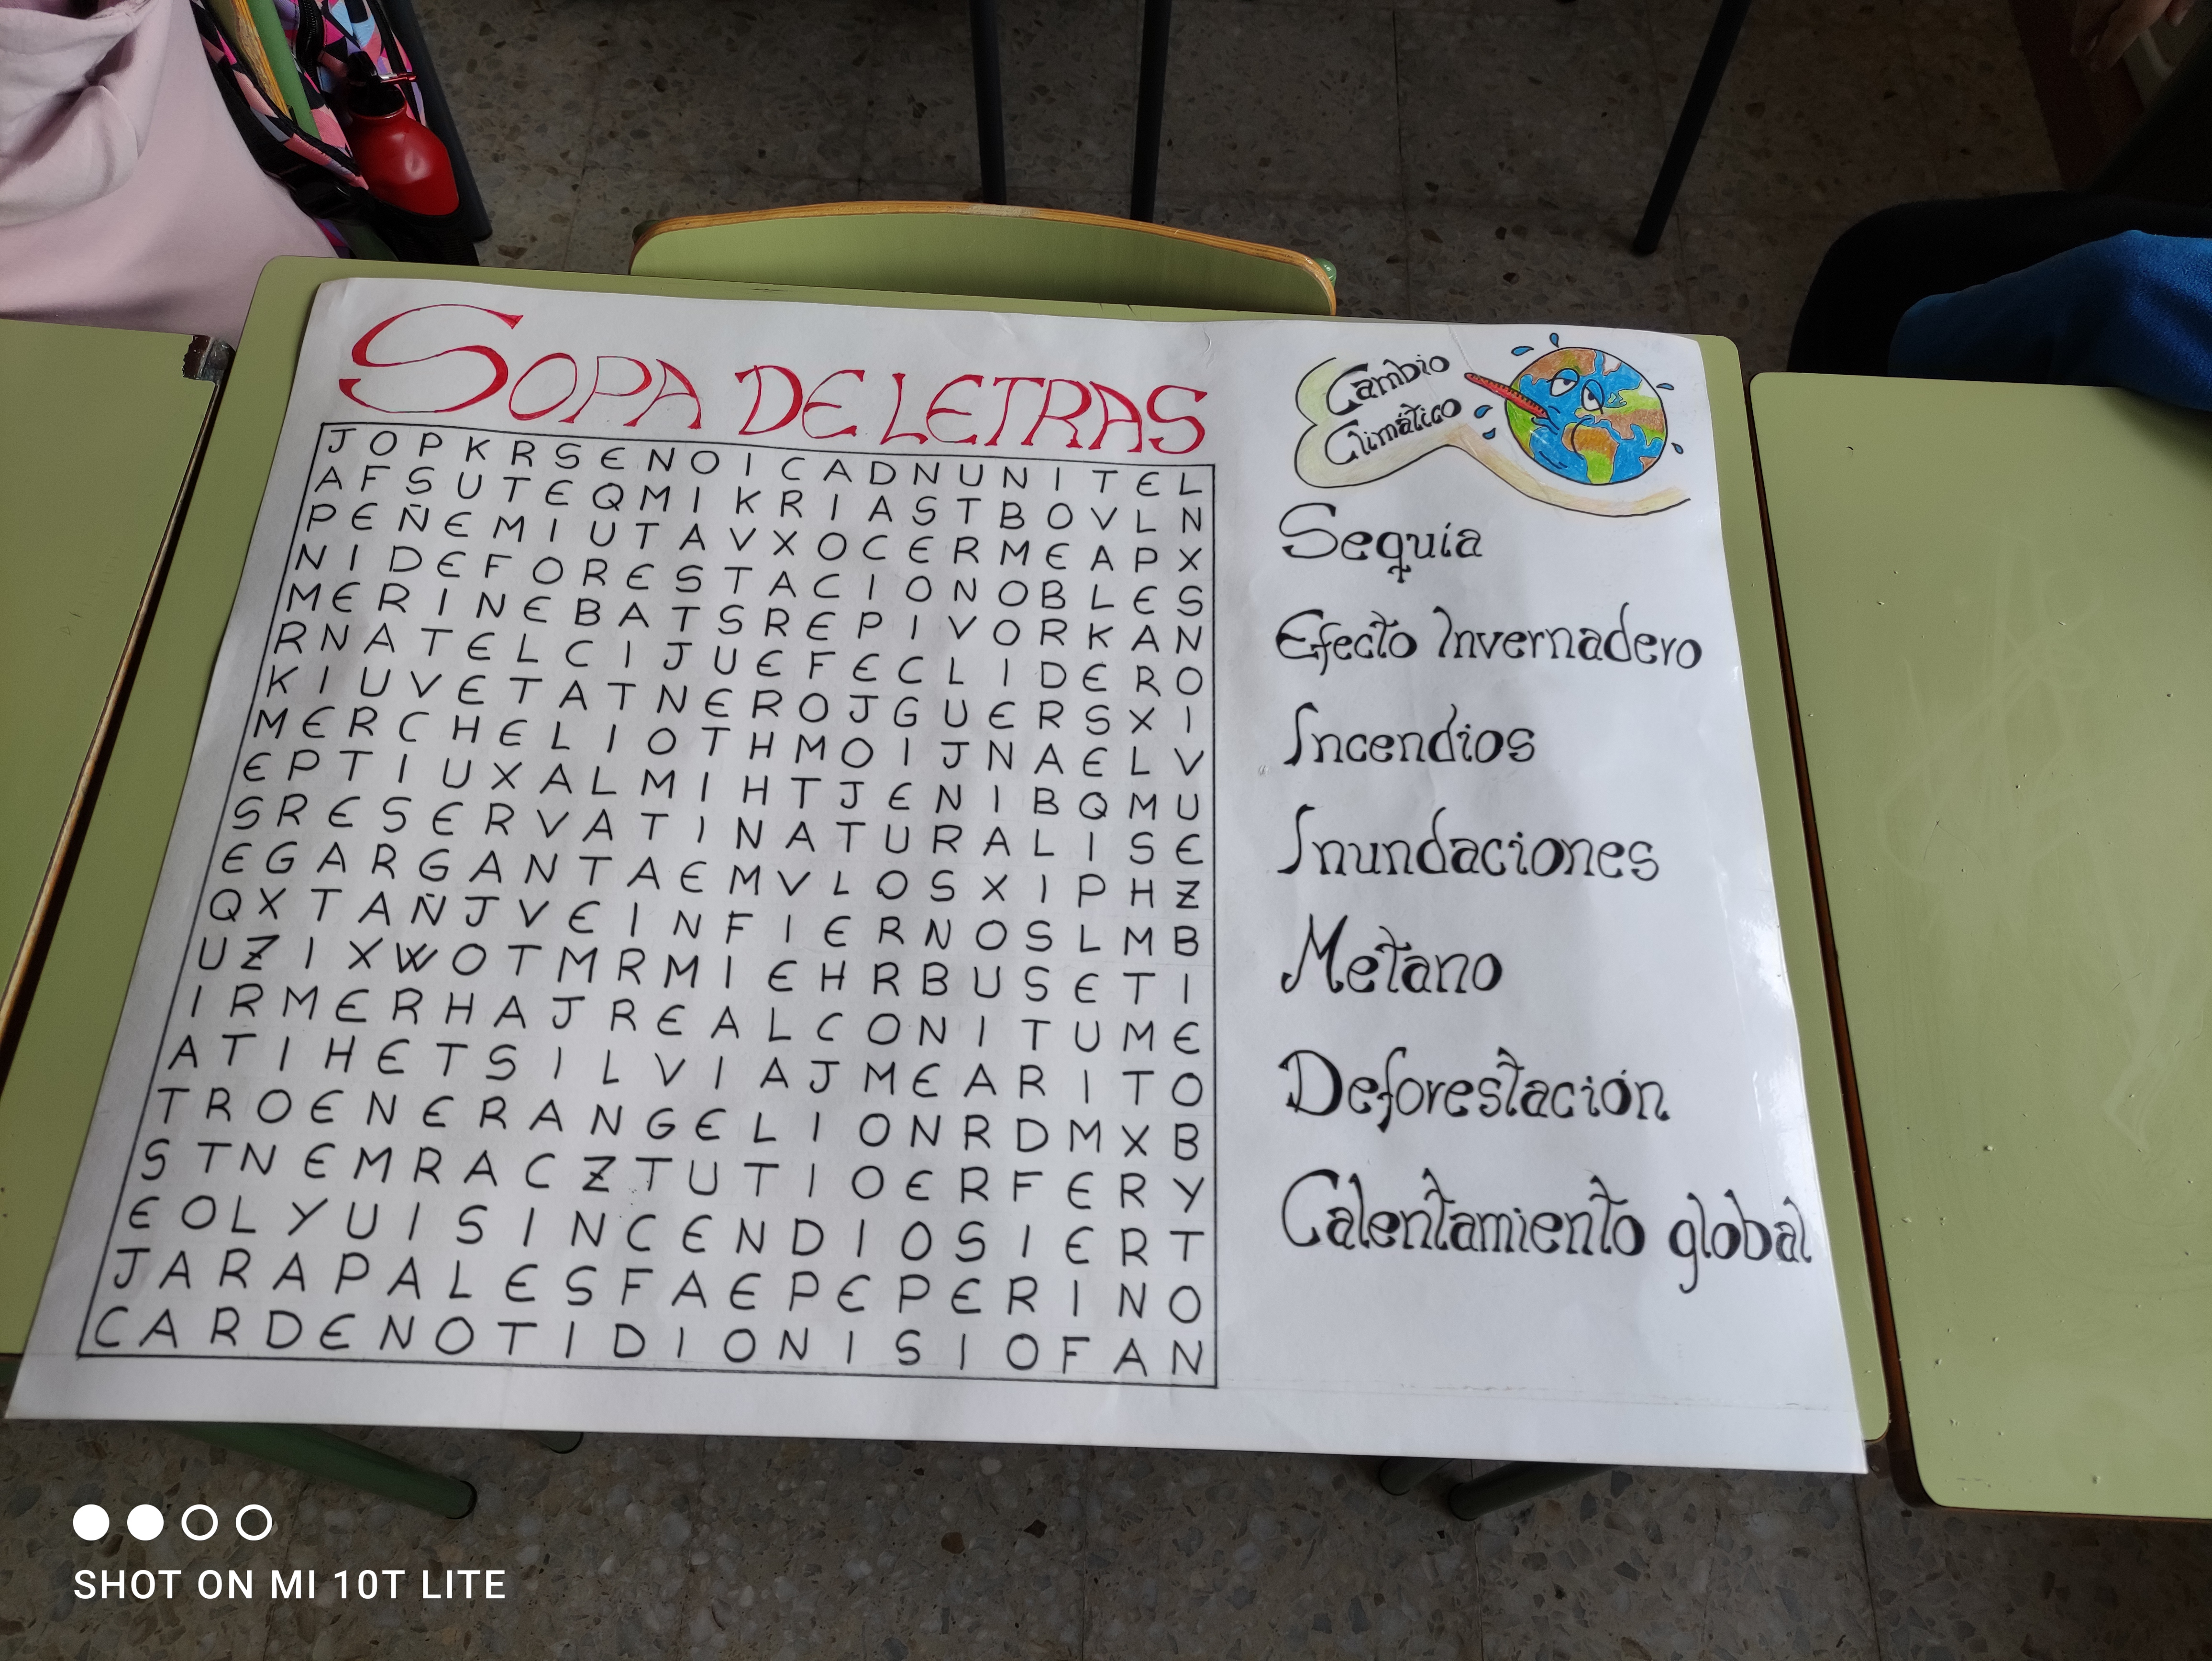 SOPA DE LETRAS
J O P K R S E N O I C A D N U N I T E L
A F S U T E Q M I K R I A S T B O V L N
P E Ñ E M I U T A V X O C E R M E A P X
N I D E F O R E S T A C I O N O B L E S
M E R I N E B A T S R E P I V O R K A N
R N A T E L C I J U E F E C L I D E R O
K I U V E T A T N E R O J G U E R S X I
M E R C H E L I O T H M O I J N A E L V
E P T I U X A L M I H T J E N I B Q M U
S R E S E R V A T I N A T U R A L I S E
E G A R G A N T A E M V L O S X I P H Z
Q X T A Ñ J V E I N F I E R N O S L M B
U Z I X W O T M R M I E H R B U S E T I
I R M E R H A J R E A L C O N I T U M E
A T I H E T S I L V I A J M E A R I T O
T R O E N E R A N G E L I O N R D M X B
S T N E M R A C Z T U T I O E R F E R Y
E O L Y U I S I N C E N D I O S I E R T
J A R A P A L E S F A E P E P E R I N O
C A R D E N O T I D I O N I S I O F A N
Cambio
Climático
Sequía
Efecto Invernadero
Incendios
Inundaciones
Metano
Deforestación
Calentamiento global
SHOT ON MI 10T LITE